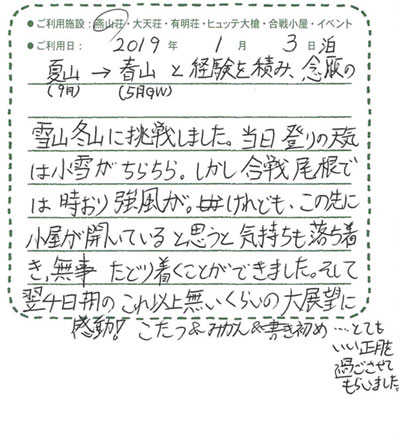 ●ご利用施設：燕山荘・大天荘・有明荘・ヒュッテ大槍・合戦小屋・イベント
●ご利用日： 2019 年 1 月 3 日泊
夏山 → 春山 と 経験を積み、念願の
(9月) (5月GW)
雪山冬山に挑戦しました。当日 登りの天気
は小雪がちらちら。しかし合戦尾根で
は 時おり 強風が。けれども、この先に
小屋が開いている と思うと 気持ちも 落ち着
き、無事 たどり着くことができました。そして
翌4日朝の これ以上無いくらいの 大展望に
感動! こたつ&みかん&書き初め …とても
いい正月を
過ごさせて
もらいました。